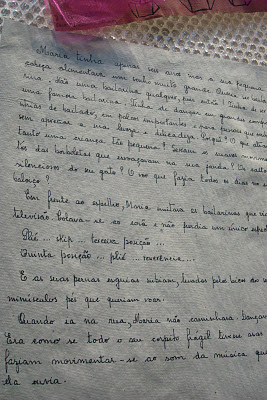 Maria tinha apenas seis anos mas a sua pequena
cabeça alimentava um sonho muito grande. Queria ser bailarina
uma bailarina qualquer, pois então! Tinha de ser
uma famosa bailarina. Tinha de dançar em grandes
de bailado, em palcos importantes e para pessoas que
sem apreciar a sua leveza e delicadeza. Porquê? O que
tanto uma criança tão pequena? Seriam os suaves
das borboletas que esvoaçavam na sua janela? Os saltos
silenciosos do seu gato? O voo que fazia todos os dias no seu
baloiço?
Em frente ao espelho, Maria imitava as bailarinas que via
televisão. Colava-se ao sofá e não perdia um único
Plié ... skip ... terceira posição ...
Quinta posição ... plié ... reverência ...
E as suas pernas esguias subiam, levadas pelo bico dos
minúsculos pés que queriam voar.
Quando ia na rua, Maria não caminhava. Dançava
Era como se todo o seu corpito frágil tivesse asas
faziam movimentar-se ao som da música que
ela ouvia.